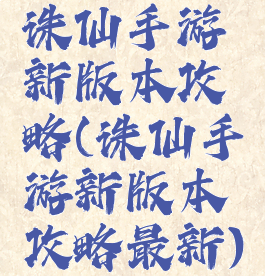 诛仙手游
新版本攻
略(诛仙手
游新版本
攻略最新)